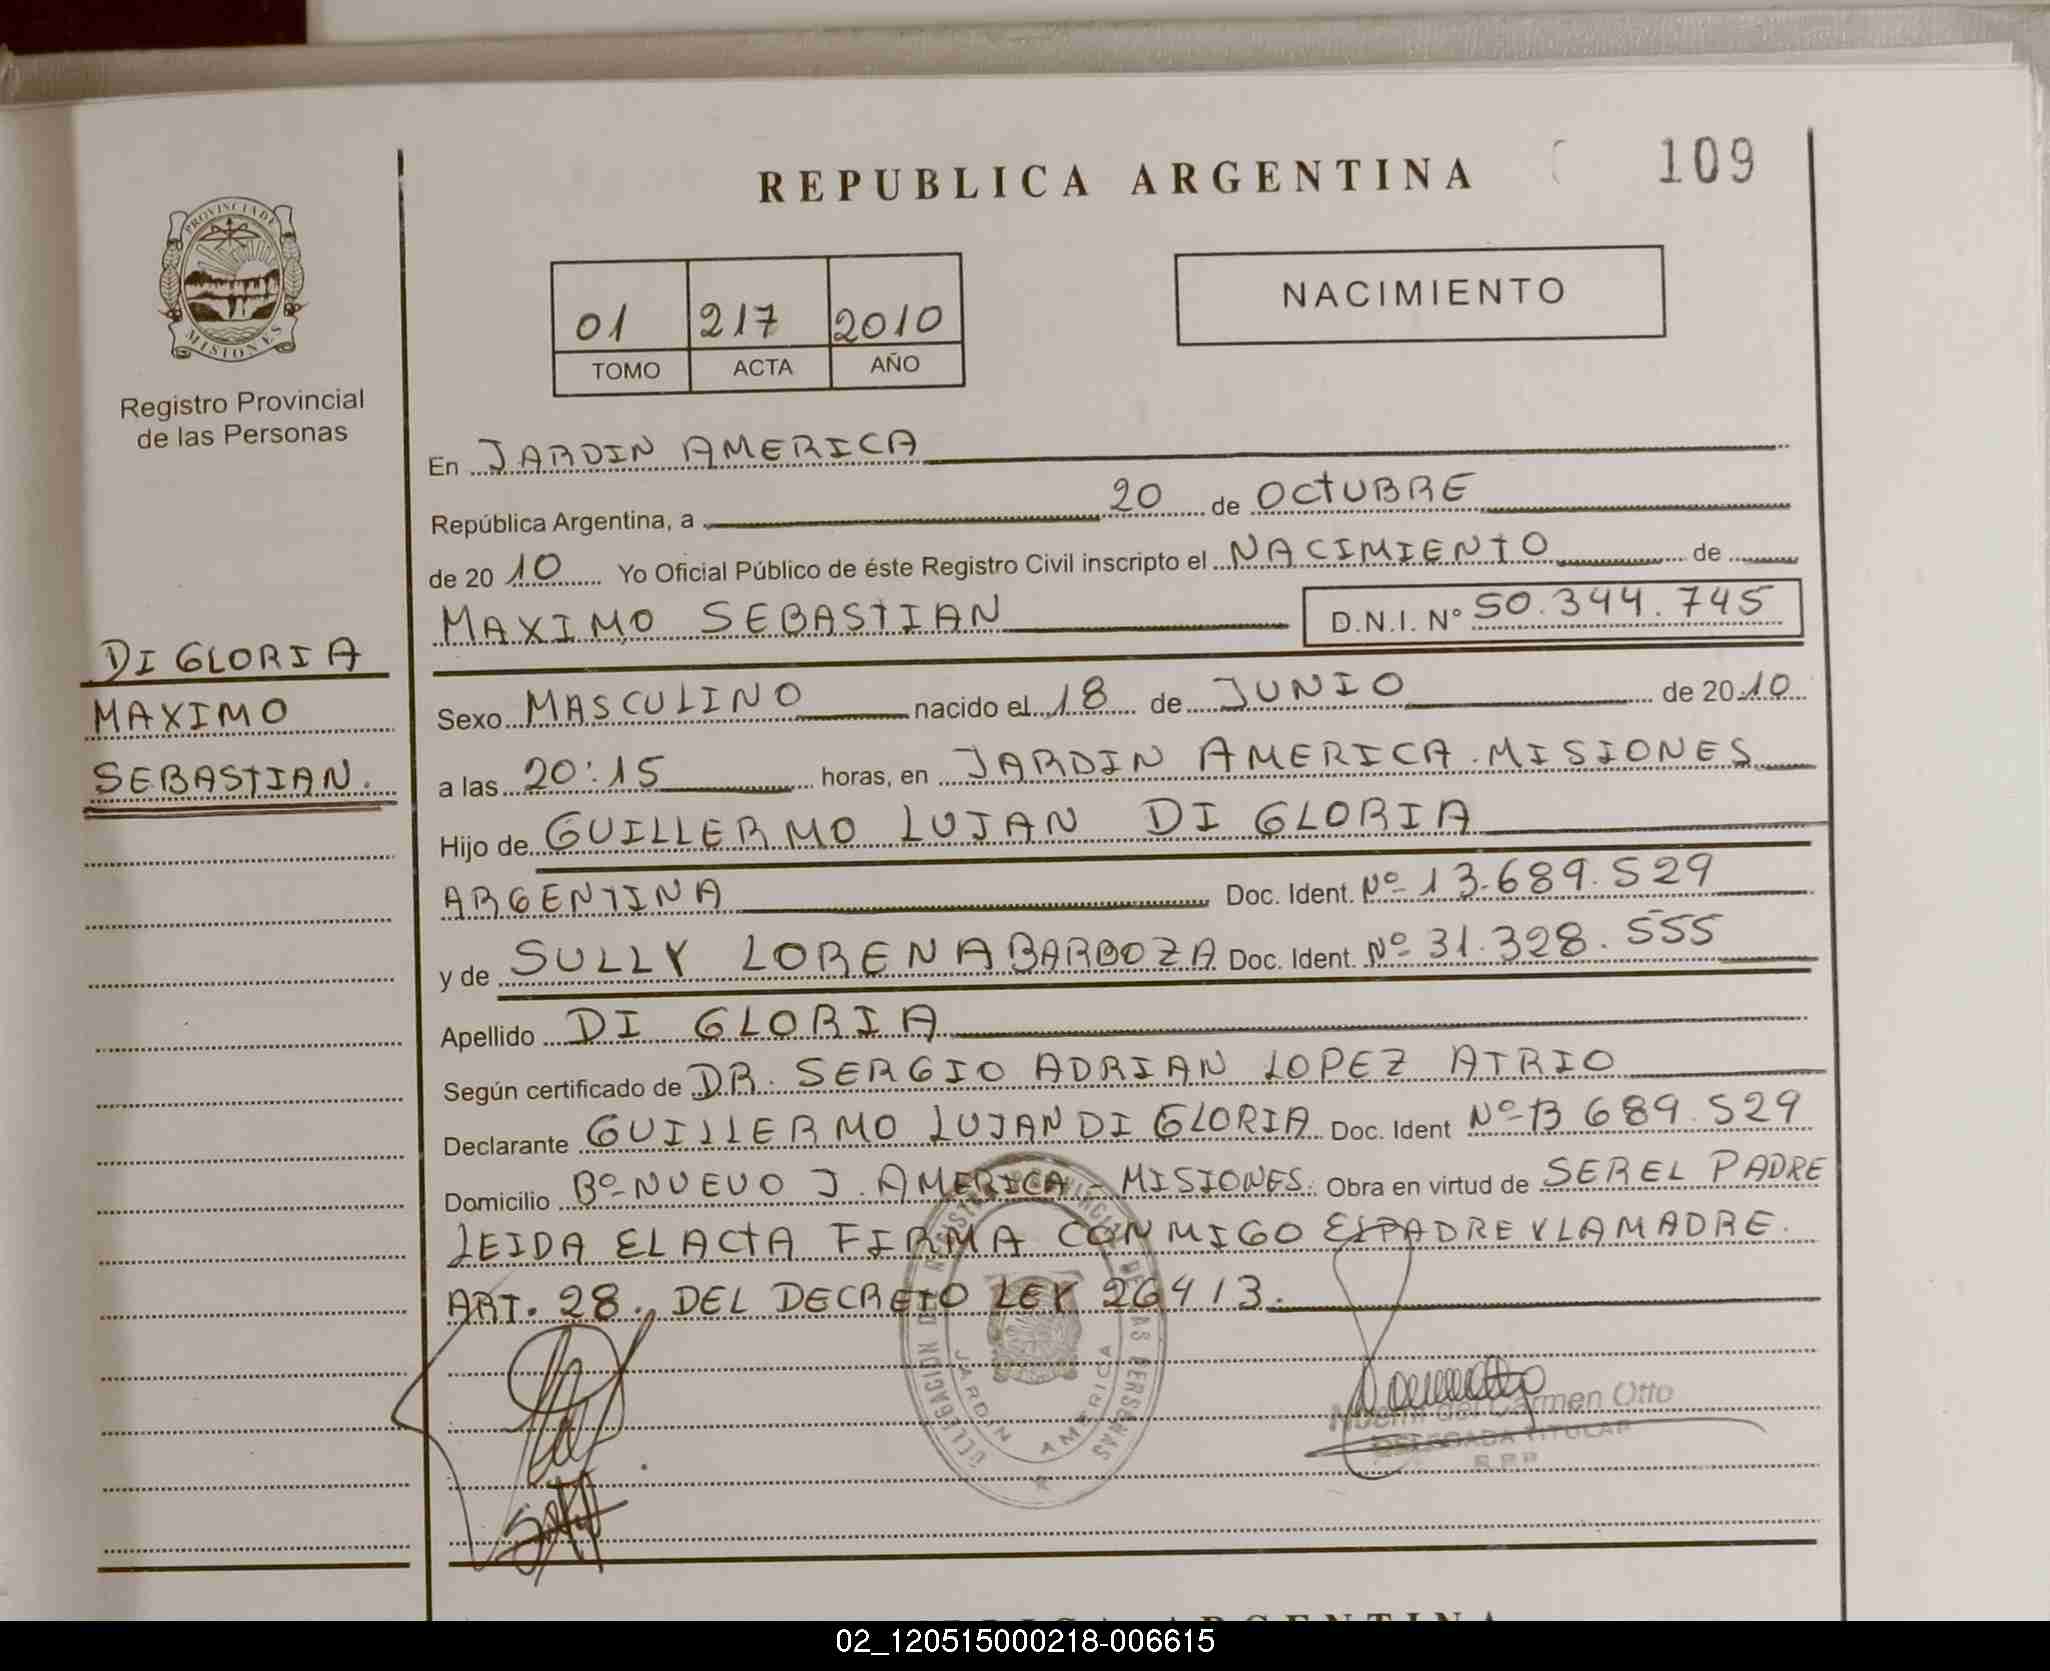 REPUBLICA ARGENTINA
109
PROVINCIA DE
MISIONES
Registro Provincial
de las Personas
01 217 2010
TOMO ACTA AÑO
NACIMIENTO
En JARDIN AMERICA
República Argentina, a 20 de OCTUBRE
de 2010 Yo Oficial Público de éste Registro Civil inscripto el NACIMIENTO de
MAXIMO SEBASTIAN D.N.I. Nº 50.344.745
DI GLORIA
MAXIMO
SEBASTIAN.
Sexo MASCULINO nacido el 18 de JUNIO de 2010
a las 20:15 horas, en JARDIN AMERICA.MISIONES
Hijo de GUILLERMO LUJAN DI GLORIA
ARGENTINA Doc. Ident. Nº 13.689.529
y de SULLY LORENA BARBOZA Doc. Ident. Nº 31.328.555
Apellido DI GLORIA
Según certificado de DR. SERGIO ADRIAN LOPEZ ATRIO
Declarante GUILLERMO LUJAN DI GLORIA Doc. Ident Nº 13 689.529
Domicilio Bº NUEVO J. AMERICA - MISIONES. Obra en virtud de SER EL PADRE
LEIDA EL ACTA FIRMA CONMIGO EL PADRE Y LA MADRE.
ART. 28. DEL DECRETO LEY 26413.
DELEGACION REGISTRO PROVINCIAL DE LAS PERSONAS
JARDIN AMERICA
Noemi del Carmen Otto
DELEGADA TITULAR
R.P.P.
REPUBLICA ARGENTINA
02_120515000218-006615